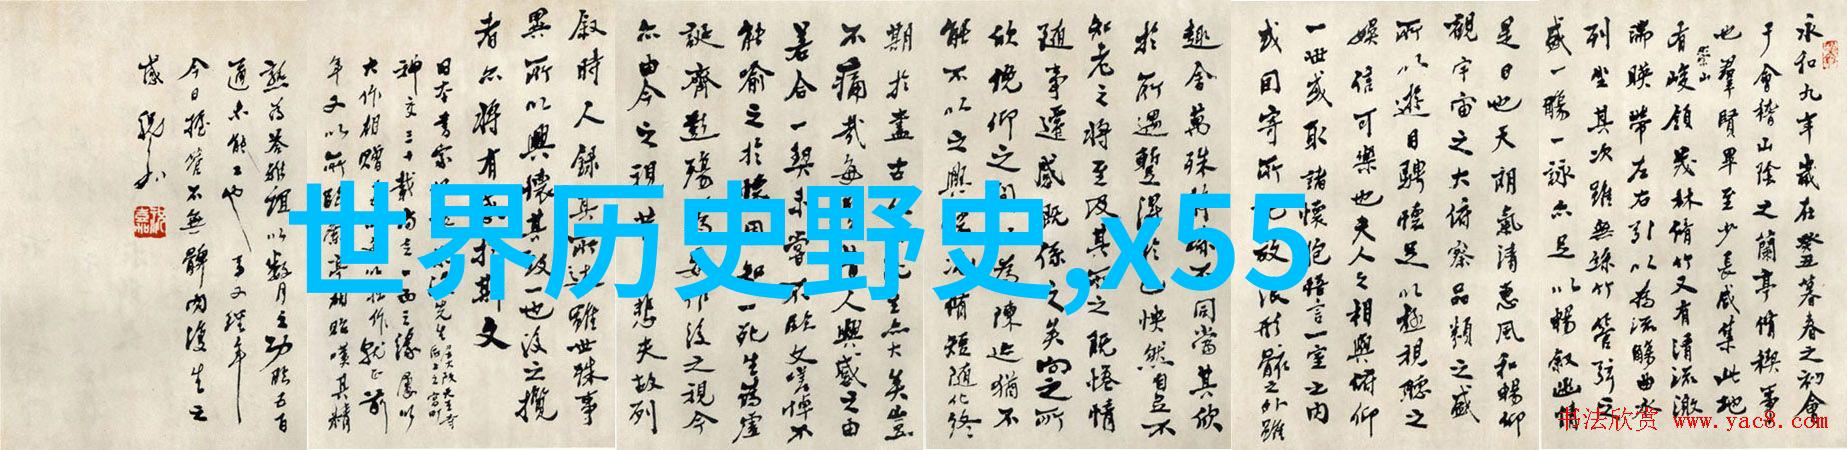 永和九年歲在癸丑暮春之初會
于會稽山陰之蘭亭脩禊事
也羣賢畢至少長咸集此地
崇山
有峻領茂林脩竹又有清流激
湍暎帶左右引以為流觴曲水
列坐其次雖無絲竹管弦之
盛一觴一詠亦足以暢敘幽情
是日也天朗氣清惠風和暢仰
觀宇宙之大俯察品類之盛
所以遊目騁懷足以極視聽之
娛信可樂也夫人之相與俯仰
一世或取諸懷抱悟言一室之內
或因寄所託放浪形骸之外雖
趣舍萬殊靜躁不同當其欣
於所遇暫得於己怏然自足不
知老之將至及其所之既惓情
隨事遷感慨係之矣向之所
欣俛仰之間以為陳迹猶不
能不以之興懷況脩短隨化終
期於盡古人云死生亦大矣豈
不痛哉每攬昔人興感之由
若合一契未嘗不臨文嗟悼不
能喻之於懷固知一死生為虛
誕齊彭殤為妄作後之視今
亦由今之視昔悲夫故列
敘時人錄其所述雖世殊事
異所以興懷其致一也後之攬
者亦將有感於斯文
日本書家先生
神交三十載
大作相贈
年又以所臨蘭亭相貽嘆其精
今日握管不無
世界历史野史,x55
书法欣赏 www.yac8.com